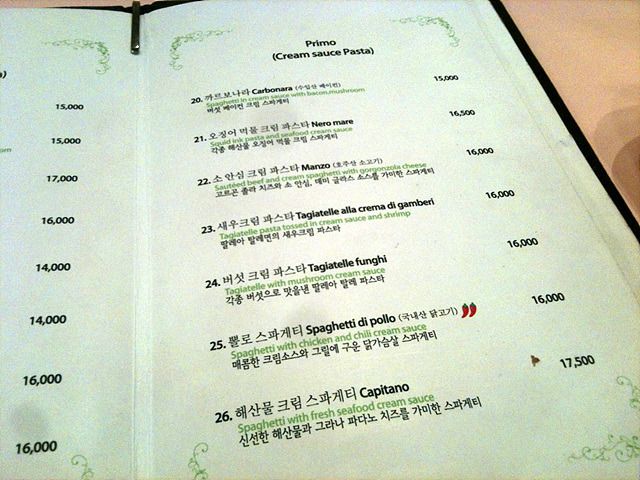 15,000
15,000
17,000
16,000
14,000
14,000
16,000
16,000
Primo
(Cream sauce Pasta)
20. 까르보나라 Carbonara (수입산 베이컨) 15,000
Spaghetti in cream sauce with bacon,mushroom
버섯 베이컨 크림 스파게티
21. 오징어 먹물 크림 파스타 Nero mare 16,500
Squid ink pasta and seafood cream sauce
각종 해산물 오징어 먹물 크림 스파게티
22. 소 안심 크림 파스타 Manzo (호주산 소고기) 16,000
Sautéed beef and cream spaghetti with gorgonzola cheese
고르곤 졸라 치즈와 소 안심, 데미 글라스 소스를 가미한 스파게티
23. 새우크림 파스타 Tagiatelle alla crema di gamberi 16,000
Tagiatelle pasta tossed in cream sauce and shrimp
딸레아 탈레면의 새우크림 파스타
24. 버섯 크림 파스타 Tagiatelle funghi 16,000
Tagiatelle with mushroom cream sauce
각종 버섯으로 맛을낸 딸레아 탈레 파스타
25. 뽈로 스파게티 Spaghetti di pollo (국내산 닭고기) 16,000
Spaghetti with chicken and chili cream sauce
매콤한 크림소스와 그릴에 구운 닭가슴살 스파게티
26. 해산물 크림 스파게티 Capitano 17,500
Spaghetti with fresh seafood cream sauce
신선한 해산물과 그라나 파다노 치즈를 가미한 스파게티